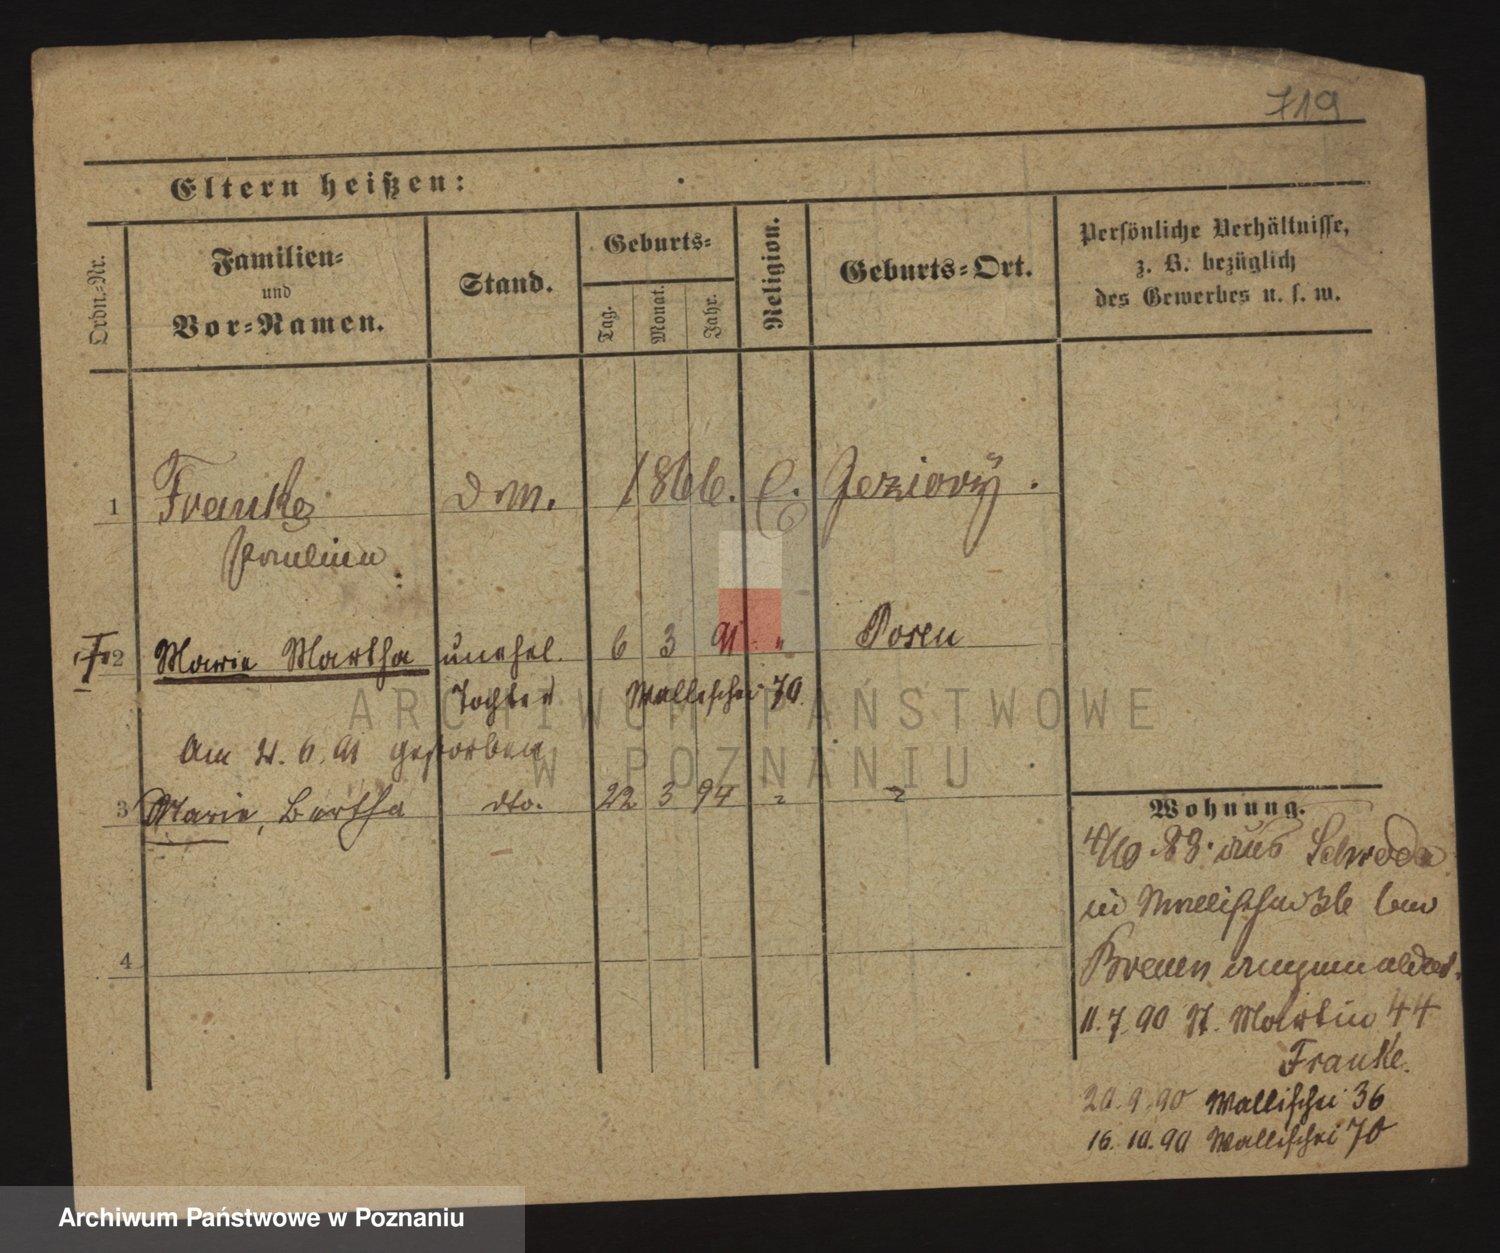 719
Eltern heißen:
Ordn.-Nr.
Familien-
und
Vor-Namen.
Stand.
Geburts-
Tag.
Monat.
Jahr.
Religion.
Geburts-Ort.
Persönliche Verhältnisse,
z. B. bezüglich
des Gewerbes u. s. w.
1 Franke 1866. Jeziory.
2 Marie Martha unehel. 6 3 91 " Posen
Tochter Wallischei 70.
am 21. 6. 91 gestorben
3 Marie, Bertha dto. 22 3 94 " "
4
Wohnung.
4/10 88. aus Schroda
in Wallischei 36 bei
angemeldet.
11. 7. 90 St. Martin 44
Franke.
20. 9. 90 Wallischei 36
16. 10. 90 Wallischei 70
ARCHIWUM PAŃSTWOWE
W POZNANIU
Archiwum Państwowe w Poznaniu